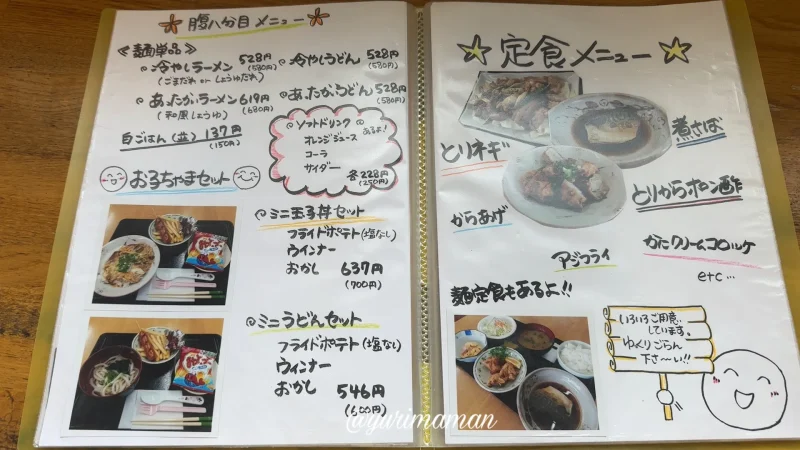 腹八分目メニュー
≪麺単品≫
冷やしラーメン 528円
(580円)
(ごまだれ or しょうゆだれ)
冷やしうどん 528円
(580円)
あったかラーメン 619円
(680円)
(和風しょうゆ)
あったかうどん 528円
(580円)
白ごはん(並) 137円
(150円)
ソフトドリンク
あるよ!
オレンジジュース
コーラ
サイダー
各228円
(250円)
お子ちゃまセット
ミニ玉子丼セット
フライドポテト(塩なし)
ウインナー
おかし 637円
(700円)
ミニうどんセット
フライドポテト(塩なし)
ウィンナー
おかし 546円
(600円)
定食メニュー
とりネギ
煮さば
からあげ
とりからポン酢
アジフライ
かにクリームコロッケ
etc…
麺定食もあるよ!!
いろいろご用意
しています。
ゆっくりごらん
下さ〜い!!
@yurimaman